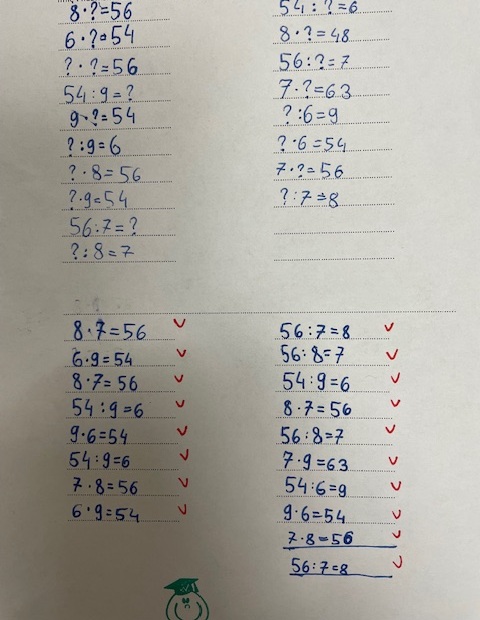 8·?=56
6·?=54
?·?=56
54:9=?
9·?=54
?:9=6
?·8=56
?·9=54
56:7=?
?:8=7
54:?=6
8·?=48
56:?=7
7·?=63
?:6=9
?·6=54
7·?=56
?:7=8
8·7=56
6·9=54
8·7=56
54:9=6
9·6=54
54:9=6
7·8=56
6·9=54
56:7=8
56:8=7
54:9=6
8·7=56
56:8=7
7·9=63
54:6=9
9·6=54
7·8=56
56:7=8